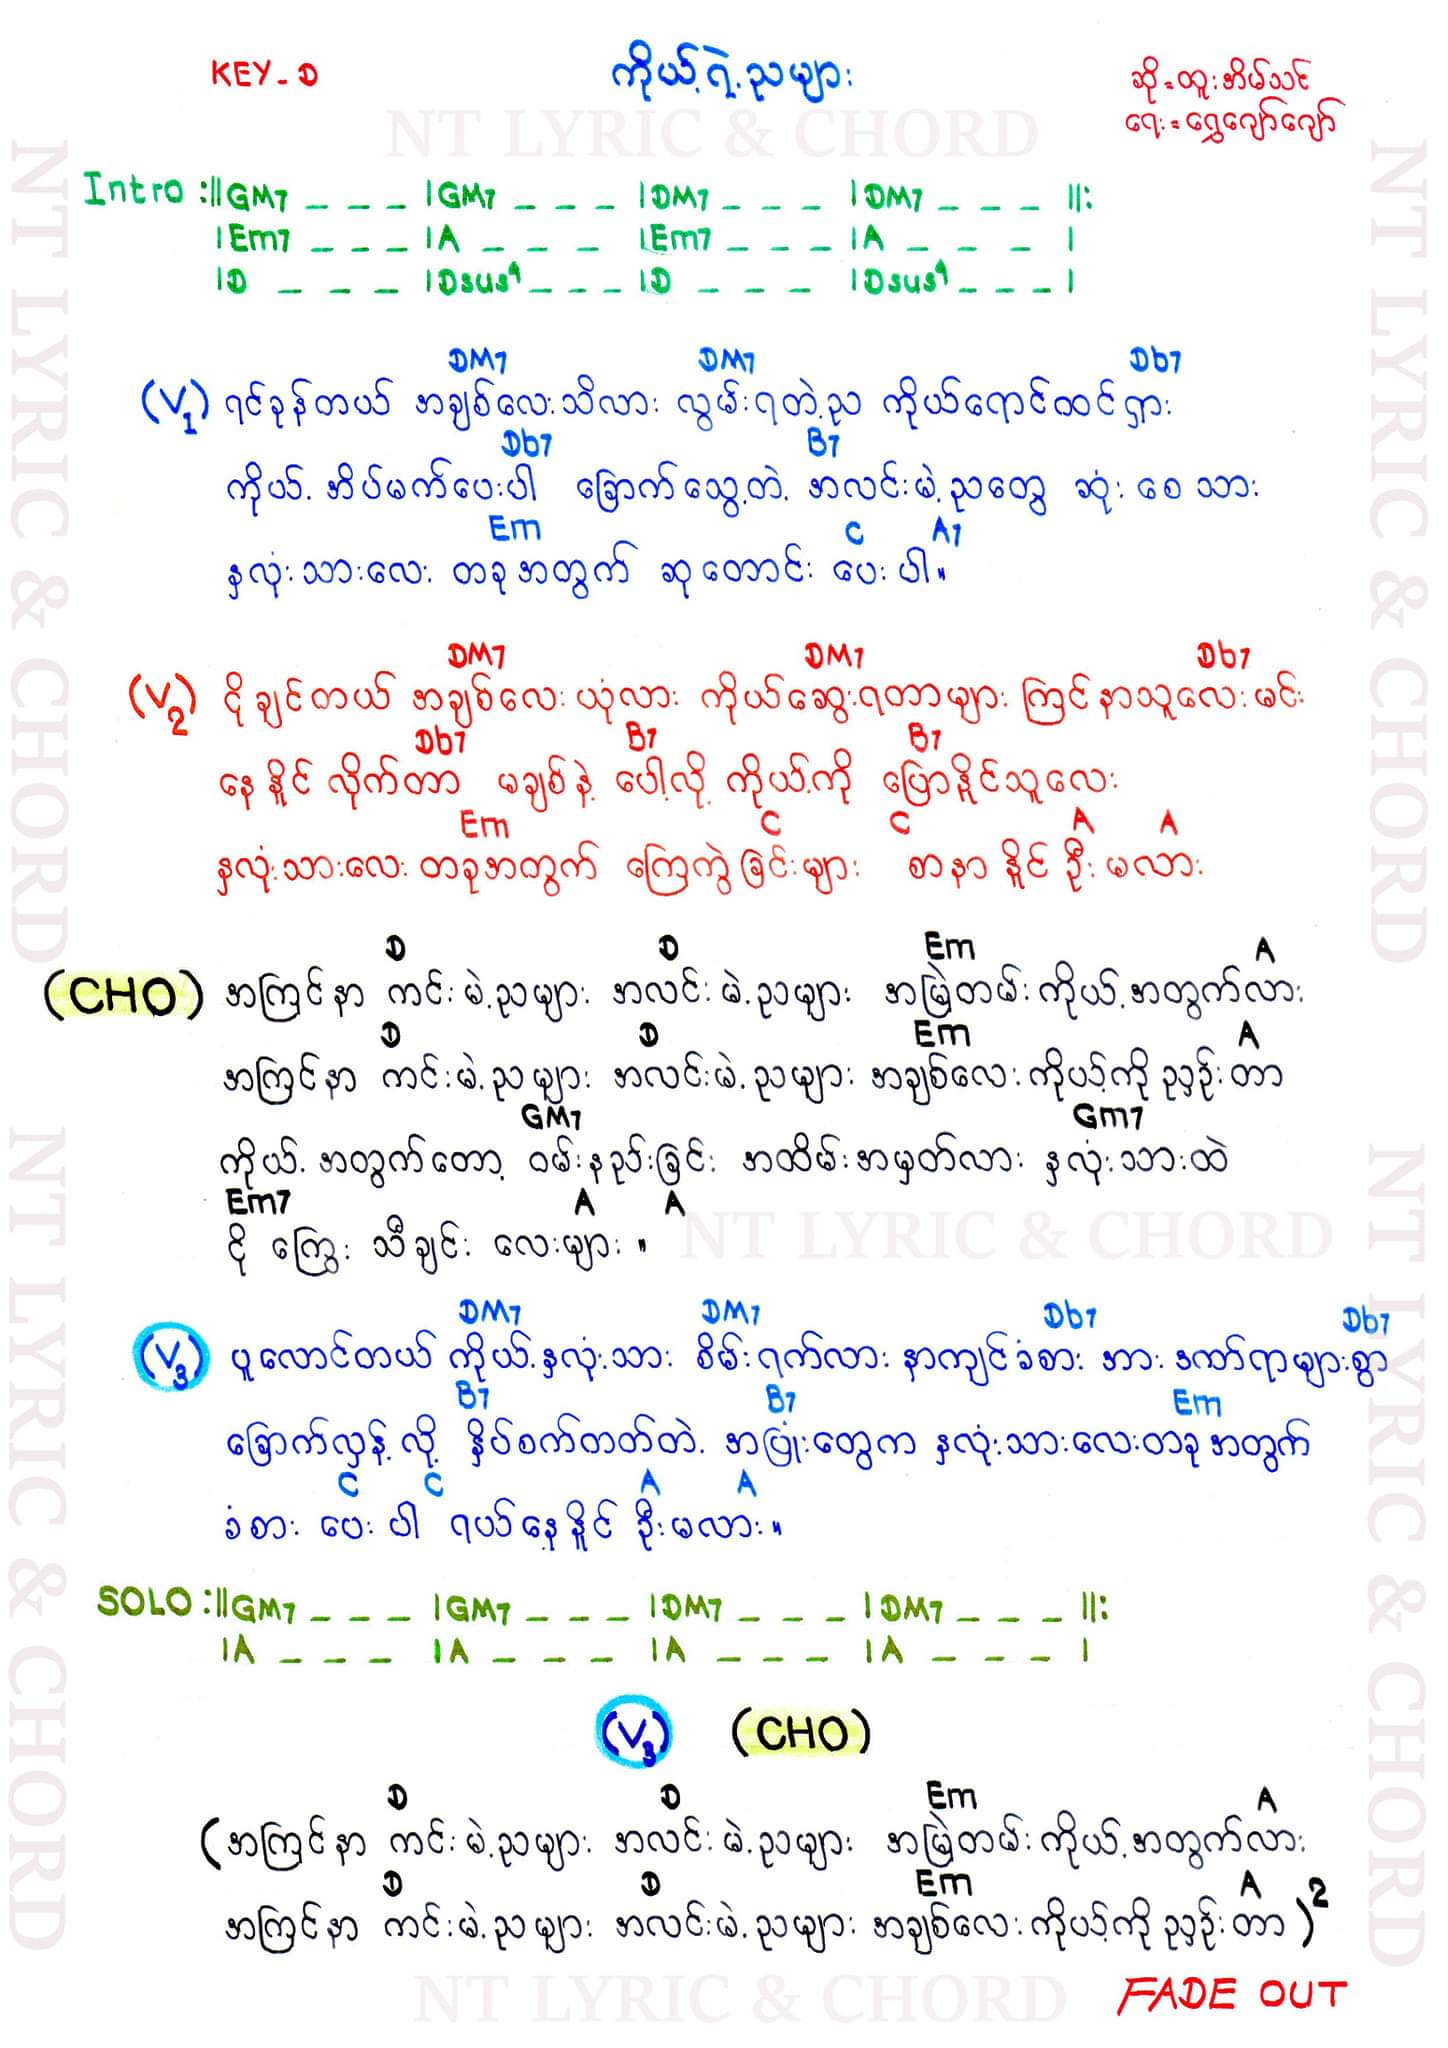 KEY - D
ကိုယ့်ရဲ့ညများ
ဆို = ထူးအိမ်သင်
ရေး = ရွှေဂျော်ဂျော်
NT LYRIC & CHORD
Intro :||GM7 _ _ _ |GM7 _ _ _ |DM7 _ _ _ |DM7 _ _ _ ||:
|Em7 _ _ _ |A _ _ _ |Em7 _ _ _ |A _ _ _ |
|D _ _ _ |Dsus4 _ _ _ |D _ _ _ |Dsus4 _ _ _ |
DM7 DM7 Db7
(V1) ရင်ခုန်တယ် အချစ်လေးသိလား လွမ်းရတဲ့ည ကိုယ်ရောင်ထင်ရှား
Db7 B7
ကိုယ့် အိပ်မက်ပေးပါ ခြောက်သွေ့တဲ့ အလင်းမဲ့ညတွေ ဆုံး စေ သား
Em C A7
နှလုံးသားလေး တခုအတွက် ဆုတောင်း ပေးပါ။
DM7 DM7 Db7
(V2) ငိုချင်တယ် အချစ်လေးယုံလား ကိုယ်ဆွေးရတာများ ကြင်နာသူလေးမင်း
Db7 B7 B7
နေနိုင်လိုက်တာ မချစ်နဲ့ ပေါ့လို့ ကိုယ့်ကို ပြောနိုင်သူလေး
Em C C A A
နှလုံးသားလေးတခုအတွက် ကြေကွဲခြင်းများ စာနာ နိုင်ဦးမလား
D D Em A
(CHO) အကြင်နာ ကင်းမဲ့ညများ အလင်းမဲ့ညများ အမြဲတမ်းကိုယ့်အတွက်လား
D D Em A
အကြင်နာ ကင်းမဲ့ညများ အလင်းမဲ့ညများ အချစ်လေးကိုယ့်ကိုညှဉ်းတာ
GM7 Gm7
ကိုယ့်အတွက်တော့ ဝမ်းနည်းခြင်း အထိမ်းအမှတ်လား နှလုံးသားထဲ
Em7 A A
ငိုကြွေး သီချင်း လေးများ။
NT LYRIC & CHORD
DM7 DM7 Db7 Db7
(V3) ပူလောင်တယ် ကိုယ့်နှလုံးသား စိမ်းရက်လား နာကျင်ခံစား အား ဒဏ်ရာများစွာ
B7 B7 Em
ခြောက်လှန့်လို့ နှိပ်စက်တတ်တဲ့ အပြုံးတွေက နှလုံးသားလေးတခုအတွက်
C C A A
ခံစား ပေးပါ ရယ်နေ့နိုင်ဦးမလား။
SOLO :||GM7 _ _ _ |GM7 _ _ _ |DM7 _ _ _ |DM7 _ _ _ ||:
|A _ _ _ |A _ _ _ |A _ _ _ |A _ _ _ |
(V3) (CHO)
D D Em A
(အကြင်နာ ကင်းမဲ့ညများ အလင်းမဲ့ညများ အမြဲတမ်းကိုယ့်အတွက်လား
D D Em A
အကြင်နာ ကင်းမဲ့ညများ အလင်းမဲ့ညများ အချစ်လေးကိုယ့်ကိုညှဉ်းတာ)2
NT LYRIC & CHORD
FADE OUT
NT LYRIC & CHORD
NT LYRIC & CHORD
NT LYRIC & CHORD
NT LYRIC & CHORD